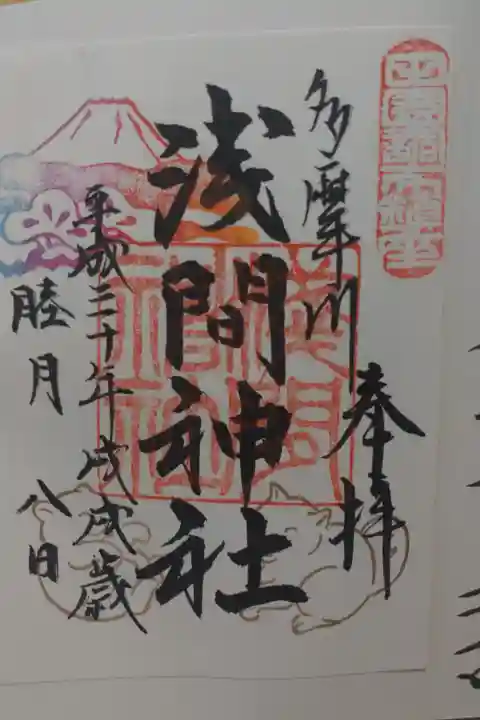 多摩川
奉拝
浅間神社
平成三十年戊戌歳
睦月八日